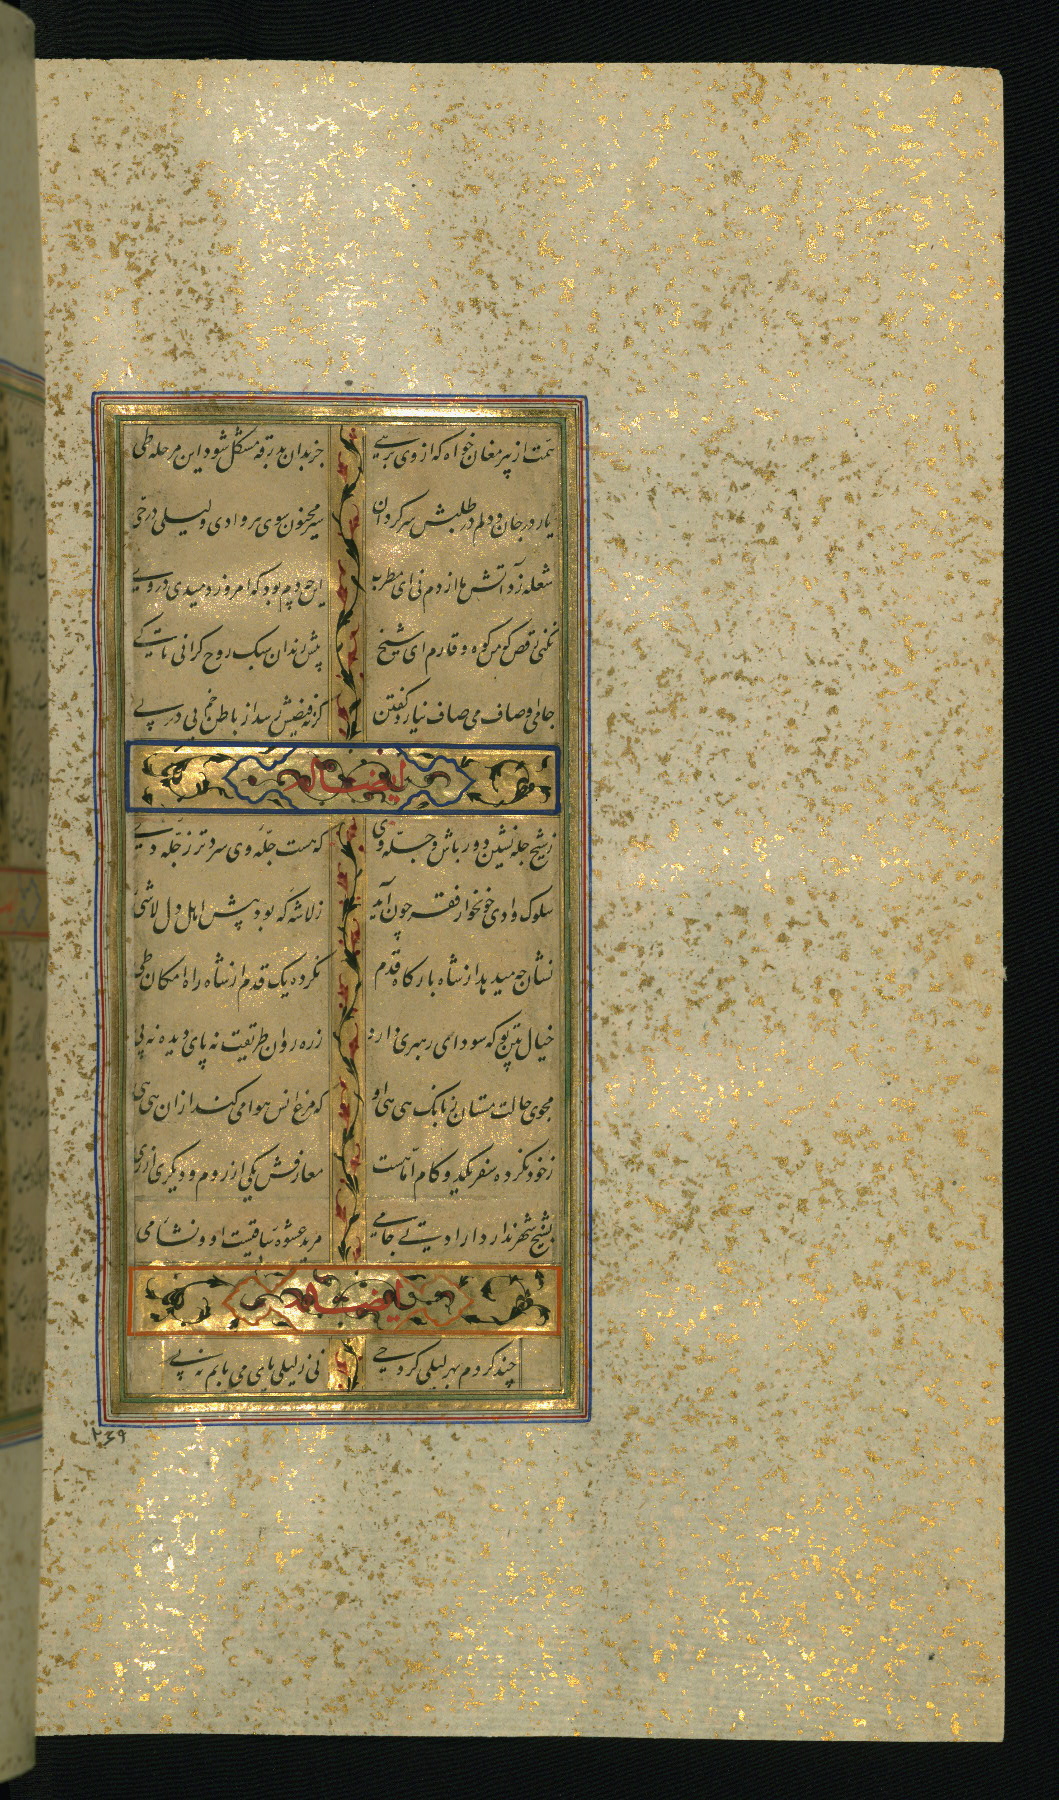 همت از پیر مغان خواه که از وی برسی جز بدان بدرقه مشکل شود این مرحله طی
یار در جان و دلم در طلبش سرگردان سیر مجنون سوی هر وادی و لیلی در حی
شعله زد آتش ما از دم نی ای مطرب این چه دم بود که امروز دمیدی در وی
نکنی رقص که من کوه وقارم ای شیخ پیش رندان سبک روح گرانی تا کی
جامی اوصاف می صاف نیارد گفتن گر نه فیضش رسد از باطن خم پی در پی
ایضا له
ز شیخ چله نشین دور باش و چله وی که هست چله وی سردتر ز چله دی
سلوک وادی خونخوار فقر چون آید ز لاشه که بود پیش اهل دل لاشی
نشان چه میدهد از شاه بارگاه قدم نکرده یک قدم از شاه راه امکان طی
خیال بین که سودای رهبری دارد ز ره روان طریقت نه پای دیده نه پی
مجوی حالت مستان ز بانگ هی هی او که مرغ انس هوا می کند از ان هی هی
ز خود نکرده سفر یکد و کام اما هست معارفش یکی از روم و دیگری از ری
بشیخ شهر ندارد ارادتی جامی مرید عشوه ساقیست او و نشاه می
ایضا له
چند کردم بهر لیلی کرد حی نی ز لیلی پای می یابم نه پی
۲۳۹